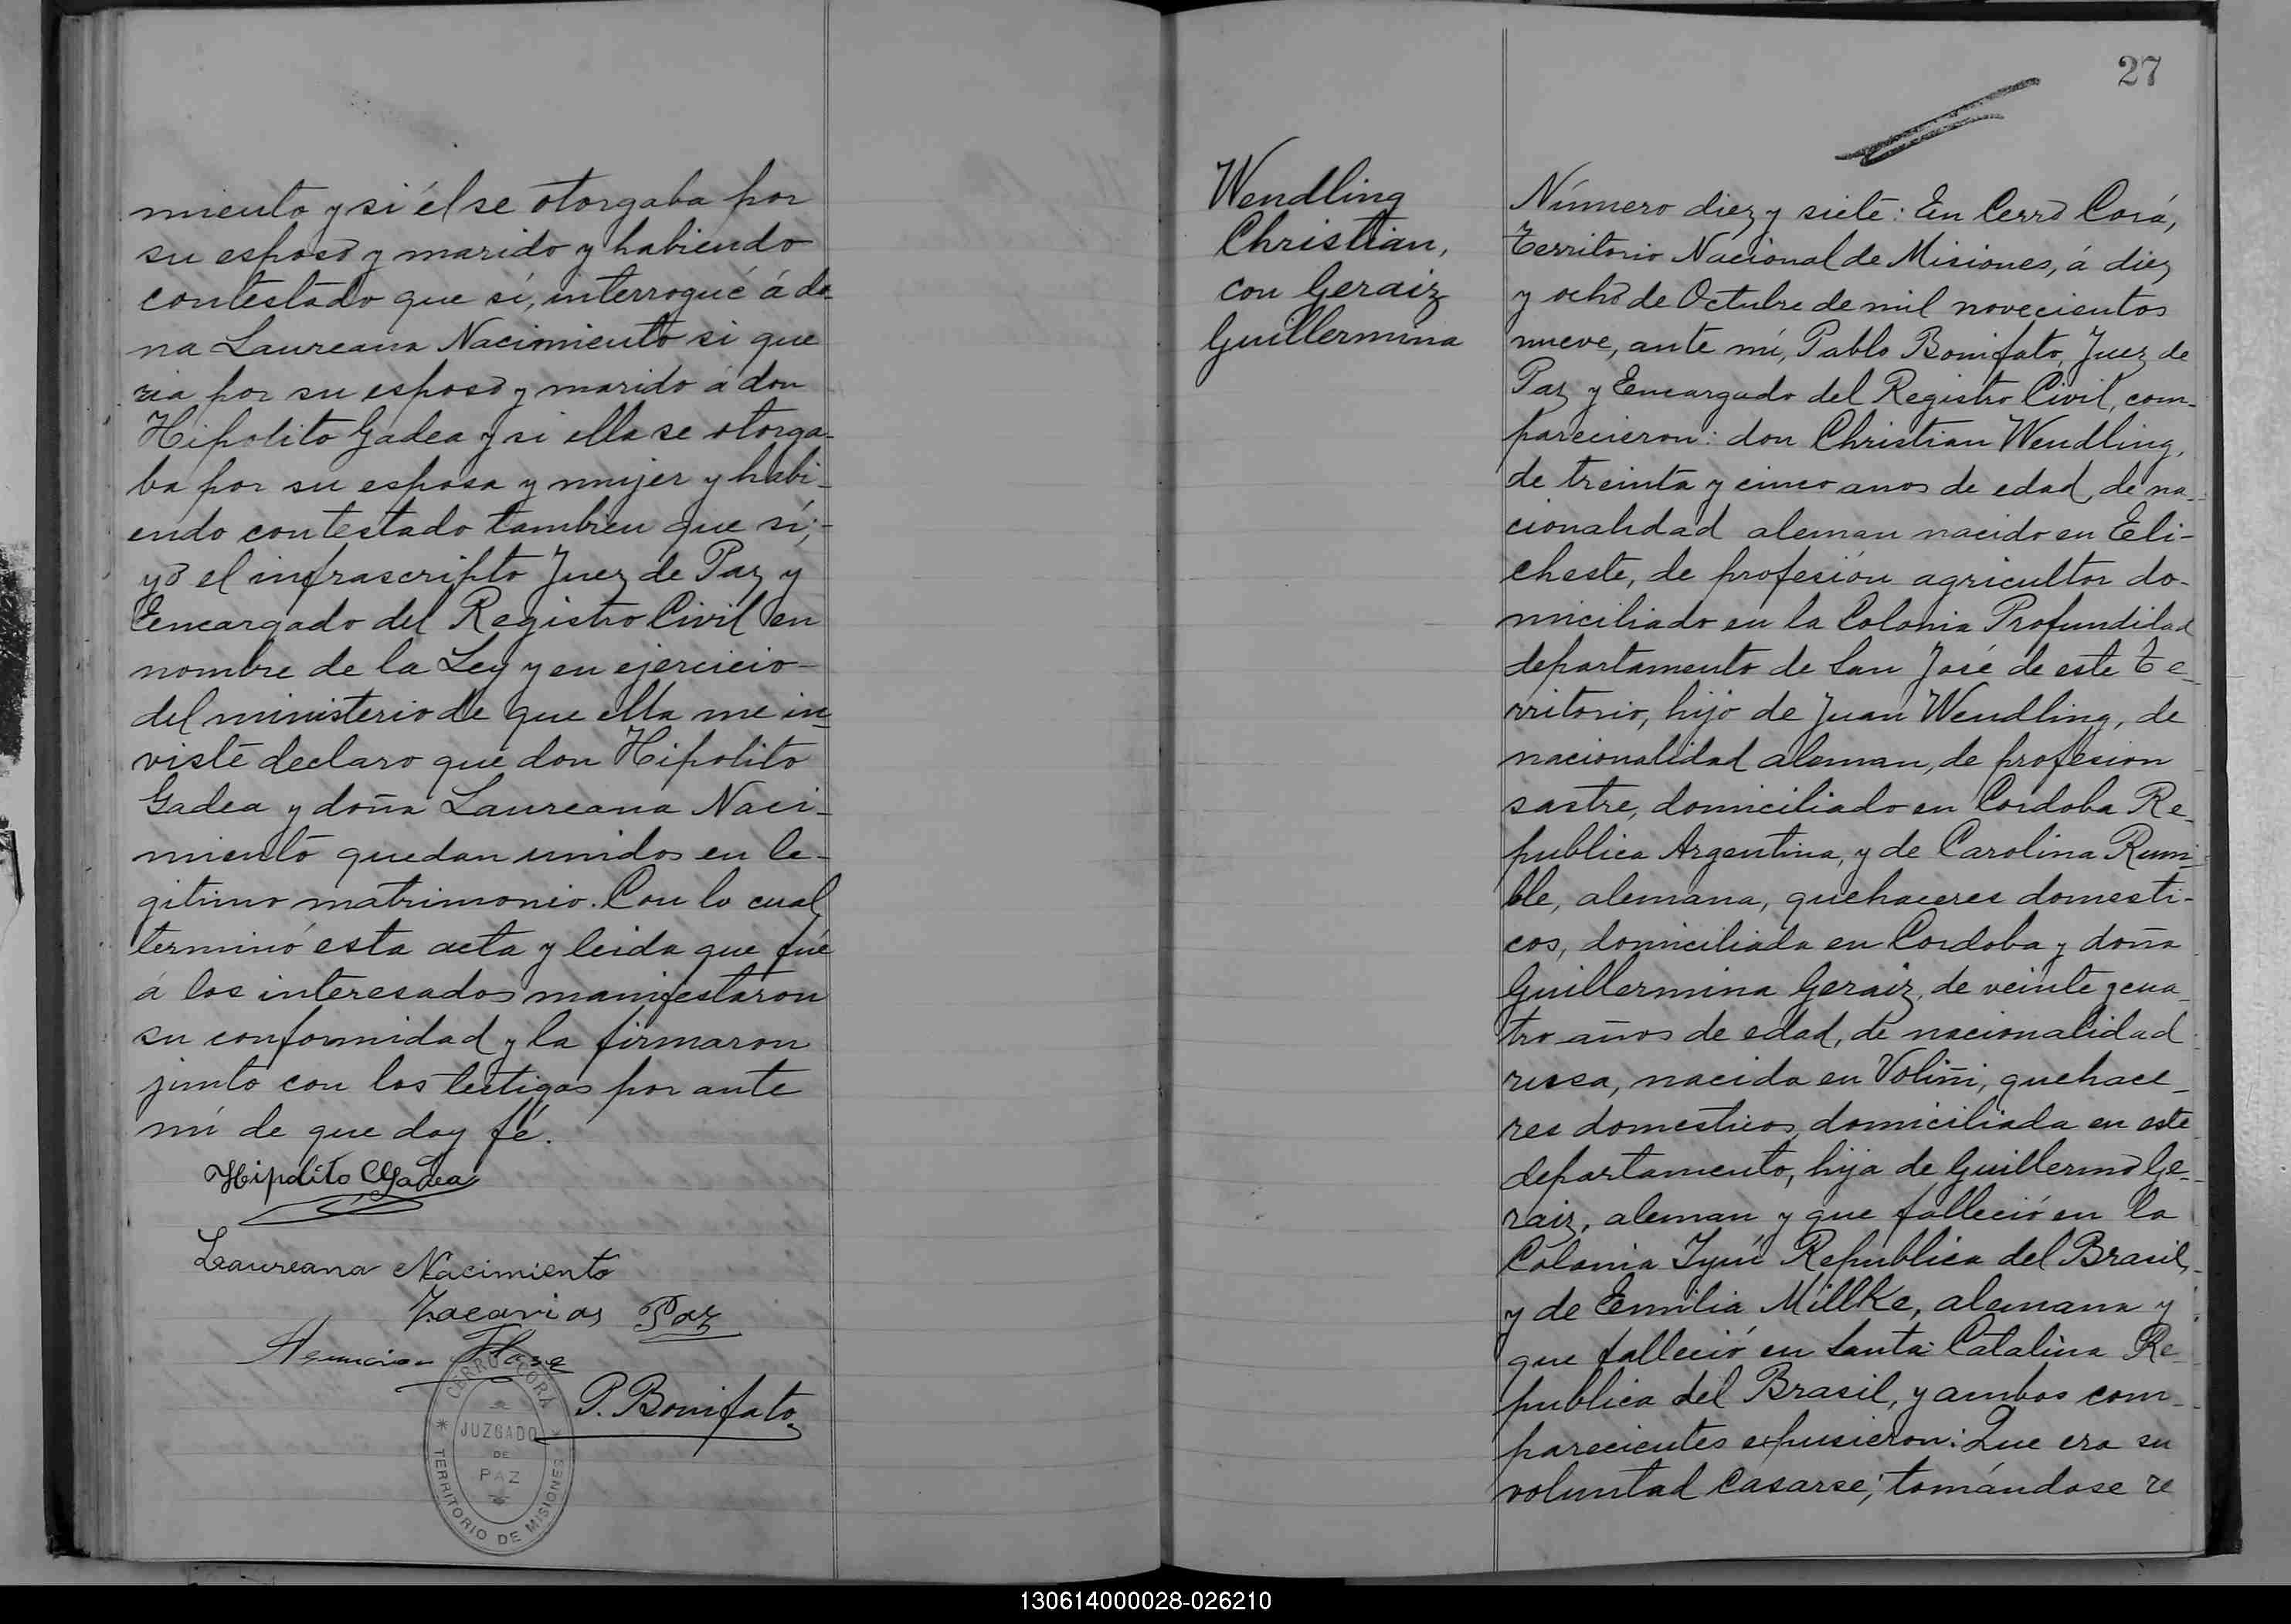 miento y si él se otorgaba por
su esposo y marido y habiendo
contestado que sí, interrogué á do-
na Laureana Nacimiento si que
ria por su esposo y marido á don
Hipolito Gadea y si ella se otorga-
ba por su esposa y mujer y habi-
endo contestado tambien que sí;-
yo el infrascripto Juez de Paz y
Encargado del Registro Civil en
nombre de la Ley y en ejercicio-
del ministerio de que ella me in-
viste declaro que don Hipolito
Gadea y doña Laureana Naci-
miento quedan unidos en le-
gitimo matrimonio. Con lo cual
terminó esta acta y leida que fué
á los interesados manifestaron
su conformidad y la firmaron
junto con los testigos por ante
mí de que doy fé.
Hipolito Gadea
Laureana Nacimiento
Zacarias Paz
P. Bonifato
CERRO CORA
JUZGADO
DE
PAZ
* TERRITORIO DE MISIONES *
27
Wendling
Christian,
con Geraiz
Guillermina
Número diez y siete: En Cerro Corá,
Territorio Nacional de Misiones, á diez
y ocho de Octubre de mil novecientos
nueve, ante mí, Pablo Bonifato, Juez de
Paz y Encargado del Registro Civil, com-
parecieron: don Christian Wendling,
de treinta y cinco anos de edad, de na-
cionalidad aleman nacido en Eli-
cheste, de profesión agricultor do-
miciliado en la Colonia Profundidad
departamento de San José de este Te-
rritorio, hijo de Juan Wendling, de
nacionalidad aleman, de profesion
sastre, domiciliado en Cordoba Re-
publica Argentina, y de Carolina Rum-
ble, alemana, quehaceres domesti-
cos, domiciliada en Cordoba y doña
Guillermina Geraiz, de veinte y cua-
tro años de edad, de nacionalidad
rusa, nacida en Voliñi, quehace-
res domesticos, domiciliada en este
departamento, hija de Guillermo Ge-
raiz, aleman y que falleció en la
Colonia Iyuí Republica del Brasil,
y de Emilia Millke, alemana y
que falleció en Santa Catalina Re-
publica del Brasil, y ambos com-
parecientes expusieron: Que era su
voluntad casarse; tomándose re
130614000028-026210